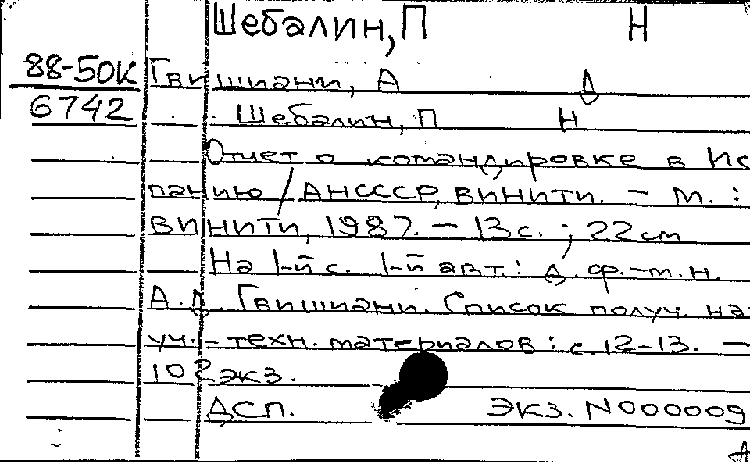 Шебалин, П Н
88-50К Гвишиани, А Д
6742 Шебалин, П Н
Отчет о командировке в Ис
панию / АНСССР, ВИНИТИ. - М. :
ВИНИТИ, 1987. - 13 с. ; 22 см
На 1-й с. 1-й авт.: д. ф.-м. н.
А. Д. Гвишиани. Список получ. на
уч.-техн. материалов: с. 12-13. —
102 экз.
ДСП. ЭКЗ. N000009